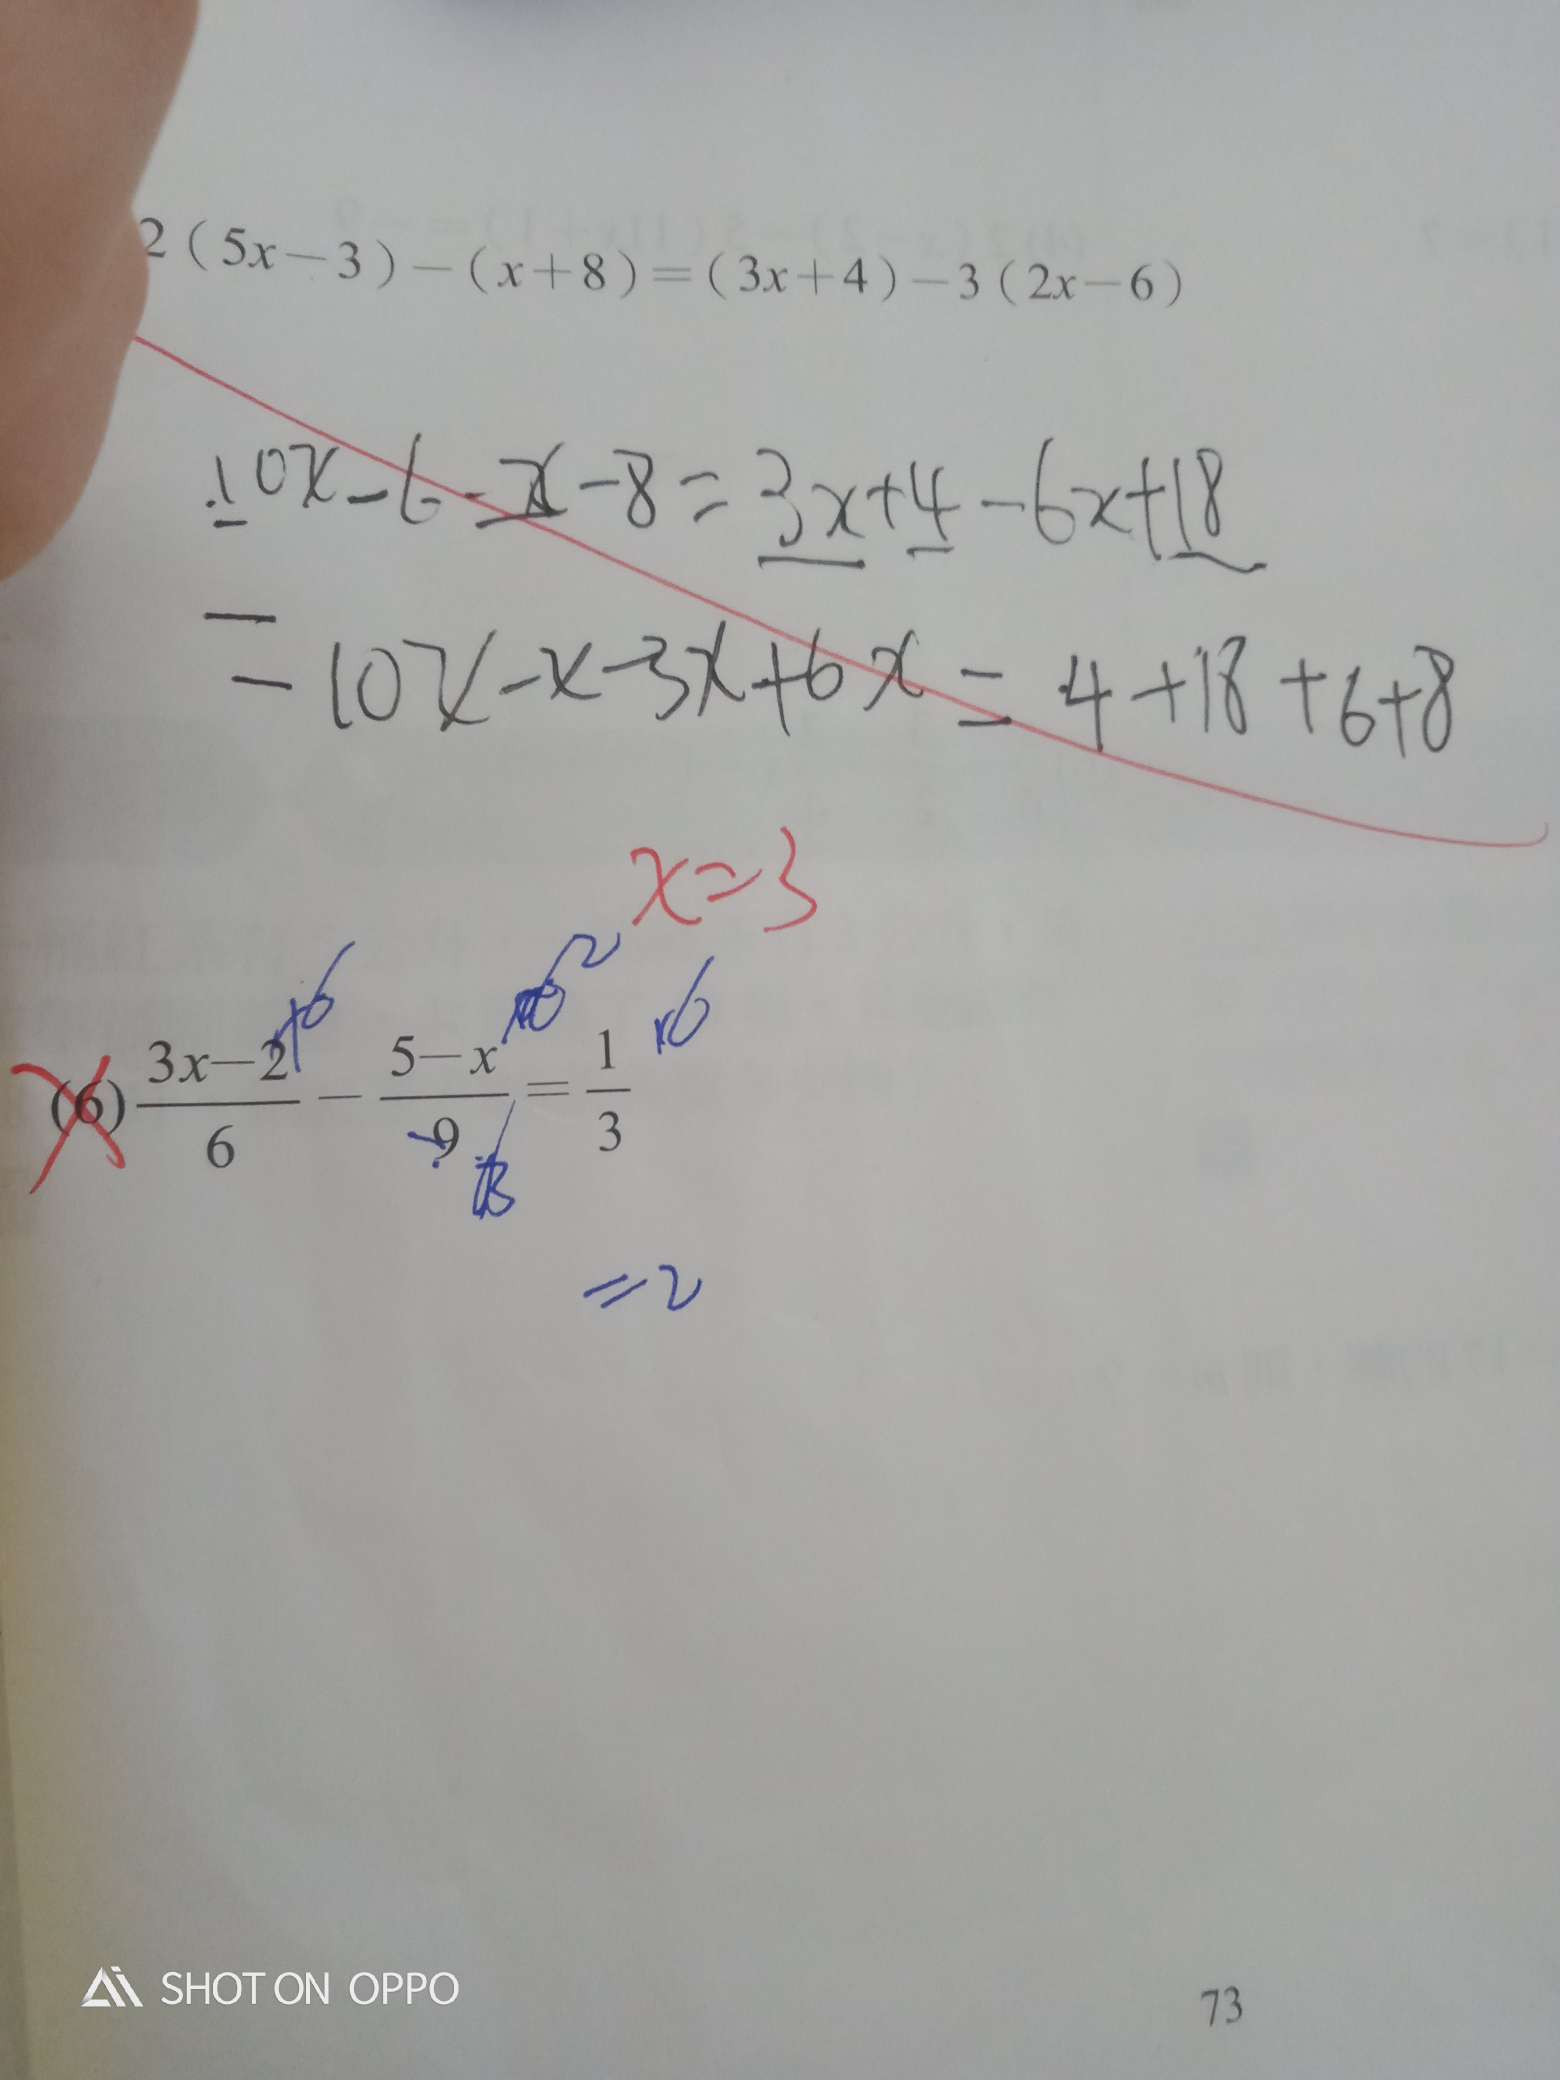 2(5x-3)-(x+8)=(3x+4)-3(2x-6)
10x-6-x-8=3x+4-6x+18
=10x-x-3x+6x=4+18+6+8
x=3
×6 2 ×6
(6) \frac{3x-2}{6} - \frac{5-x}{9} = \frac{1}{3}
=2
SHOT ON OPPO
73